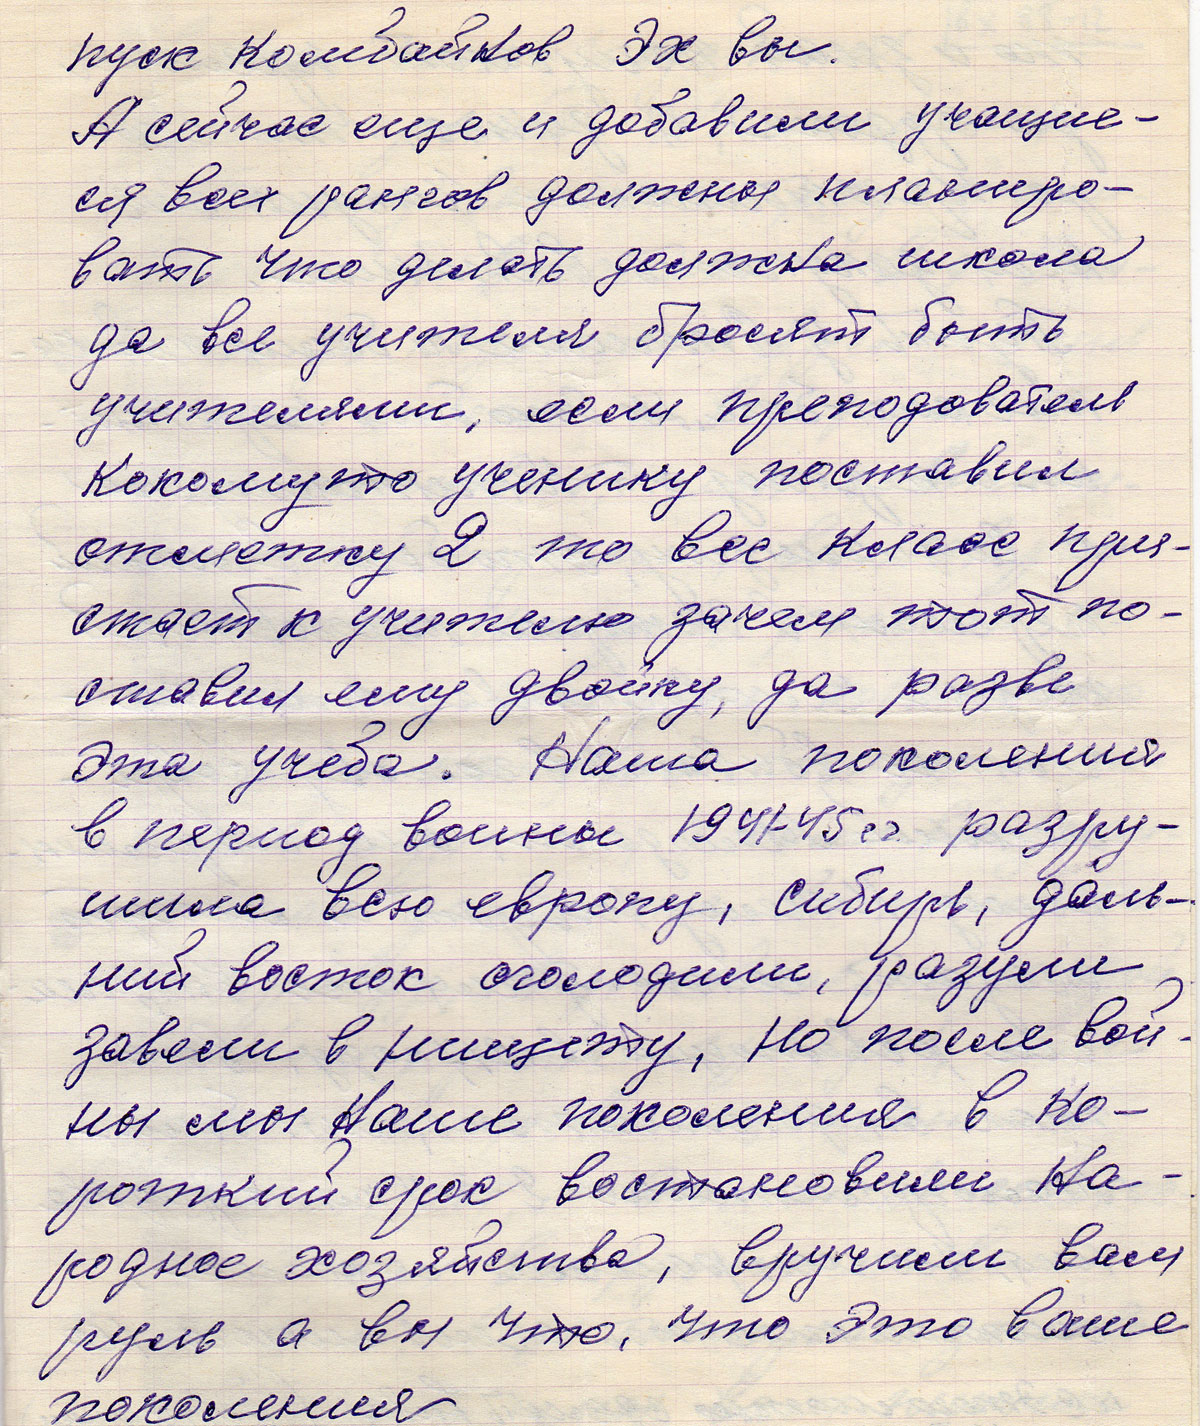 пуск комбайнов Эх вы.
А сейчас еще и добавили учащие-
ся всех рангов должны планиро-
вать что делать должна школа
да все учителя бросят быть
учителями, если преподователь
Кокомуто ученику поставил
отметку 2 то весь класс при-
стает к учителю зачем тот по-
ставил ему двойку, да разве
эта учеба. Наша поколения
в период воины 1941-45 гг. разру-
шила всю европу, сибирь, даль-
ний восток оголодили, разули
завели в нищету, но после вой-
ны мы Наше поколения в ко-
рожкий срок востановили На-
родное хозяйства, вручили вам
руль а вы что, что это ваше
поколения